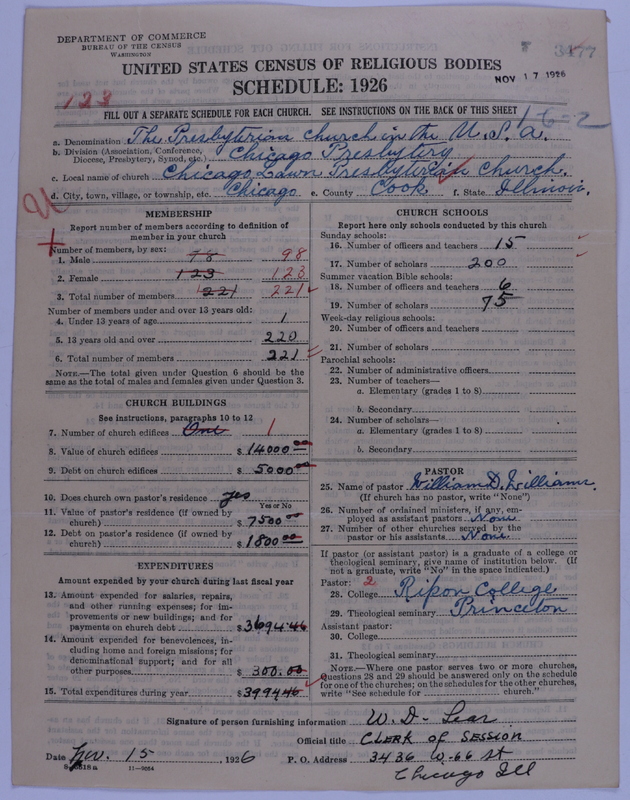 DEPARTMENT OF COMMERCE
BUREAU OF THE CENSUS
WASHINGTON
3477
UNITED STATES CENSUS OF RELIGIOUS BODIES
NOV 17 1926
SCHEDULE: 1926
123
FILL OUT A SEPARATE SCHEDULE FOR EACH CHURCH. SEE INSTRUCTIONS ON THE BACK OF THIS SHEET
1-6-2
a. Denomination The Presbyterian Church in the U.S.A.
b. Division (Association, Conference, Diocese, Presbytery, Synod, etc.) Chicago Presbytery
c. Local name of church Chicago Lawn Presbyterian Church.
d. City, town, village, or township, etc. Chicago e. County Cook. f. State Illinois.
MEMBERSHIP
Report number of members according to definition of
member in your church
Number of members, by sex:
1. Male 98 98
2. Female 123 123
3. Total number of members 221 221
Number of members under and over 13 years old:
4. Under 13 years of age 1
5. 13 years old and over 220
6. Total number of members 221
NOTE.—The total given under Question 6 should be
same as the total of males and females given under Question 3.
CHURCH BUILDINGS
See instructions, paragraphs 10 to 12
7. Number of church edifices One 1
8. Value of church edifices $ 14000.00
9. Debt on church edifices $ 5000.00
10. Does church own pastor's residence yes
Yes or No
11. Value of pastor's residence (if owned by
church) $ 7500.00
12. Debt on pastor's residence (if owned by
church) $ 1800.00
EXPENDITURES
Amount expended by your church during last fiscal year
13. Amount expended for salaries, repairs,
and other running expenses; for im-
provements or new buildings; and for
payments on church debt $ 3694.46
14. Amount expended for benevolences, in-
cluding home and foreign missions; for
denominational support; and for all
other purposes $ 300.00
15. Total expenditures during year $ 3994.46
CHURCH SCHOOLS
Report here only schools conducted by this church
Sunday schools:
16. Number of officers and teachers 15
17. Number of scholars 200
Summer vacation Bible schools:
18. Number of officers and teachers 6
19. Number of scholars 75
Week-day religious schools:
20. Number of officers and teachers
21. Number of scholars
Parochial schools:
22. Number of administrative officers
23. Number of teachers—
a. Elementary (grades 1 to 8)
b. Secondary
24. Number of scholars—
a. Elementary (grades 1 to 8)
b. Secondary
PASTOR
25. Name of pastor William D. Williams.
(If church has no pastor, write "None")
26. Number of ordained ministers, if any, em-
ployed as assistant pastors None
27. Number of other churches served by the
pastor or his assistants None.
If pastor (or assistant pastor) is a graduate of a college or
theological seminary, give name of institution below. (If
not a graduate, write "No" in the space indicated.)
Pastor: 2
28. College Ripon College
29. Theological seminary Princeton
Assistant pastor:
30. College
31. Theological seminary
NOTE.—Where one pastor serves two or more churches,
Questions 28 and 29 should be answered only on the schedule
for one of the churches; on the schedules for the other churches,
write "See schedule for church."
Signature of person furnishing information W. D. Lear
Official title CLERK OF SESSION
Date Nov. 15 1926 P. O. Address 3436 W. 66 St
Chicago Ill
11—9064